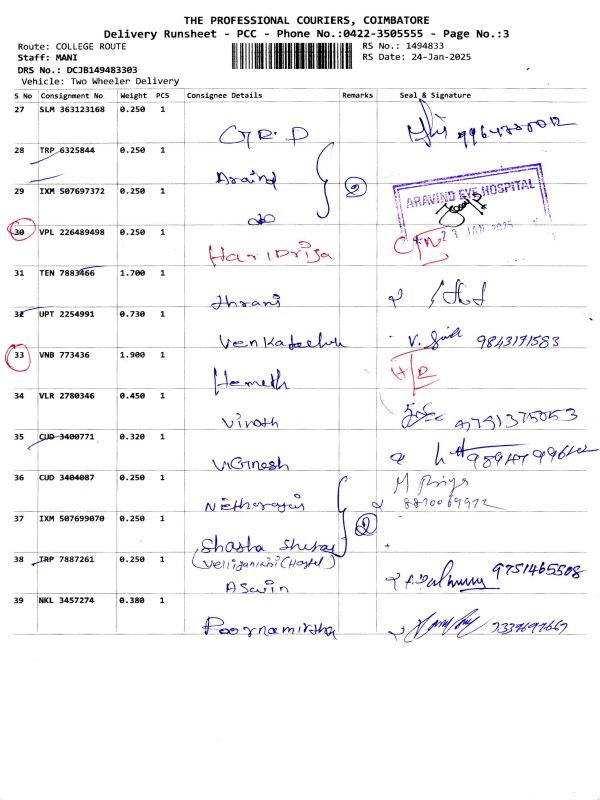 THE PROFESSIONAL COURIERS, COIMBATORE
Delivery Runsheet - PCC - Phone No.:0422-3505555 - Page No.:3
Route: COLLEGE ROUTE RS No.: 1494833
Staff: MANI RS Date: 24-Jan-2025
DRS No.: DCJB149483303
Vehicle: Two Wheeler Delivery
S No Consignment No Weight PCS Consignee Details Remarks Seal & Signature
27 SLM 363123168 0.250 1
28 TRP 6325844 0.250 1
Aravind
29 IXM 507697372 0.250 1 2 ARAVIND EYE HOSPITAL
do 23 JAN 2025
30 VPL 226489498 0.250 1
Haridrija
31 TEN 7883466 1.700 1
Thrani
32 UPT 2254991 0.730 1
9843171583
33 VNB 773436 1.900 1
Hemeth
34 VLR 2780346 0.450 1
Vinoth
35 CUD 3400771 0.320 1
Vignesh
36 CUD 3404087 0.250 1 M Priya
37 IXM 507699070 0.250 1 2
Shasha
38 TRP 7887261 0.250 1 (Hostel)
Aswin 9751465508
39 NKL 3457274 0.380 1
Poornamirtha